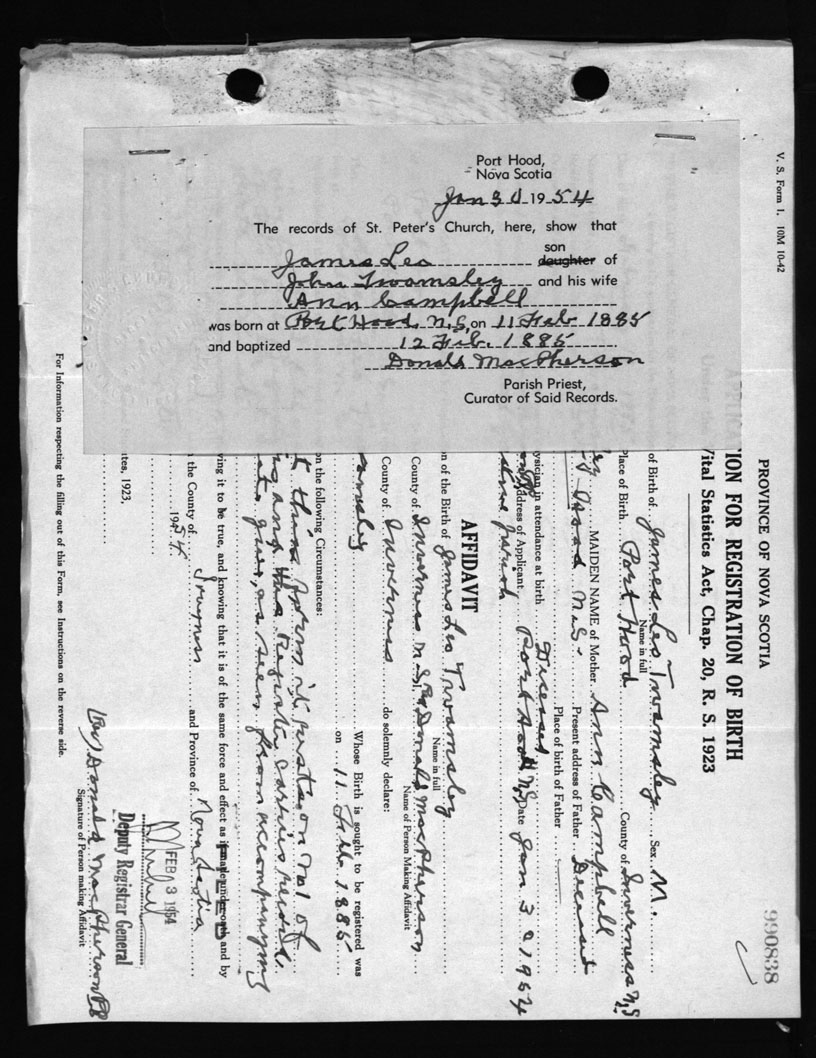 Port Hood,
Nova Scotia
Jan 30 1954
The records of St. Peter's Church, here, show that
son
James Leo daughter of
John Twamsley and his wife
Ann Campbell
was born at Port Hood, N.S. on 11 Feb 1885
and baptized 12 Feb. 1885
Donald MacPherson
Parish Priest,
Curator of Said Records.
V. S. Form 1. 10M 10-42
990838
PROVINCE OF NOVA SCOTIA
APPLICATION FOR REGISTRATION OF BIRTH
Vital Statistics Act, Chap. 20, R. S. 1923
of Birth of James Leo Twamsley Sex M.
Name in full
Place of Birth Port Hood County of Inverness N.S
MAIDEN NAME of Mother Ann Campbell
Hood N.S. Present address of Father Deceased
Place of birth of Father
ysician in attendance at birth Deceased
Address of Applicant Port Hood N.S. Date Jan 30 1954
Parish
AFFIDAVIT
n of the Birth of James Leo Twamsley
Name in full
County of Inverness N.S. Donald MacPherson
Name of Person Making Affidavit
County of Inverness do solemnly declare:
Whose Birth is sought to be registered was
amsley on 11 Feb. 1885
on the following Circumstances:
of
Register carries record
given, as seen from accompanying
ving it to be true, and knowing that it is of the same force and effect as if made under oath and by
the County of Inverness and Province of Nova Scotia
1954
FEB 3 1954
Deputy Registrar General
ates, 1923,
(Rev) Donald MacPherson PP
Signature of Person making Affidavit
For Information respecting the filling out of this Form, see Instructions on the reverse side.